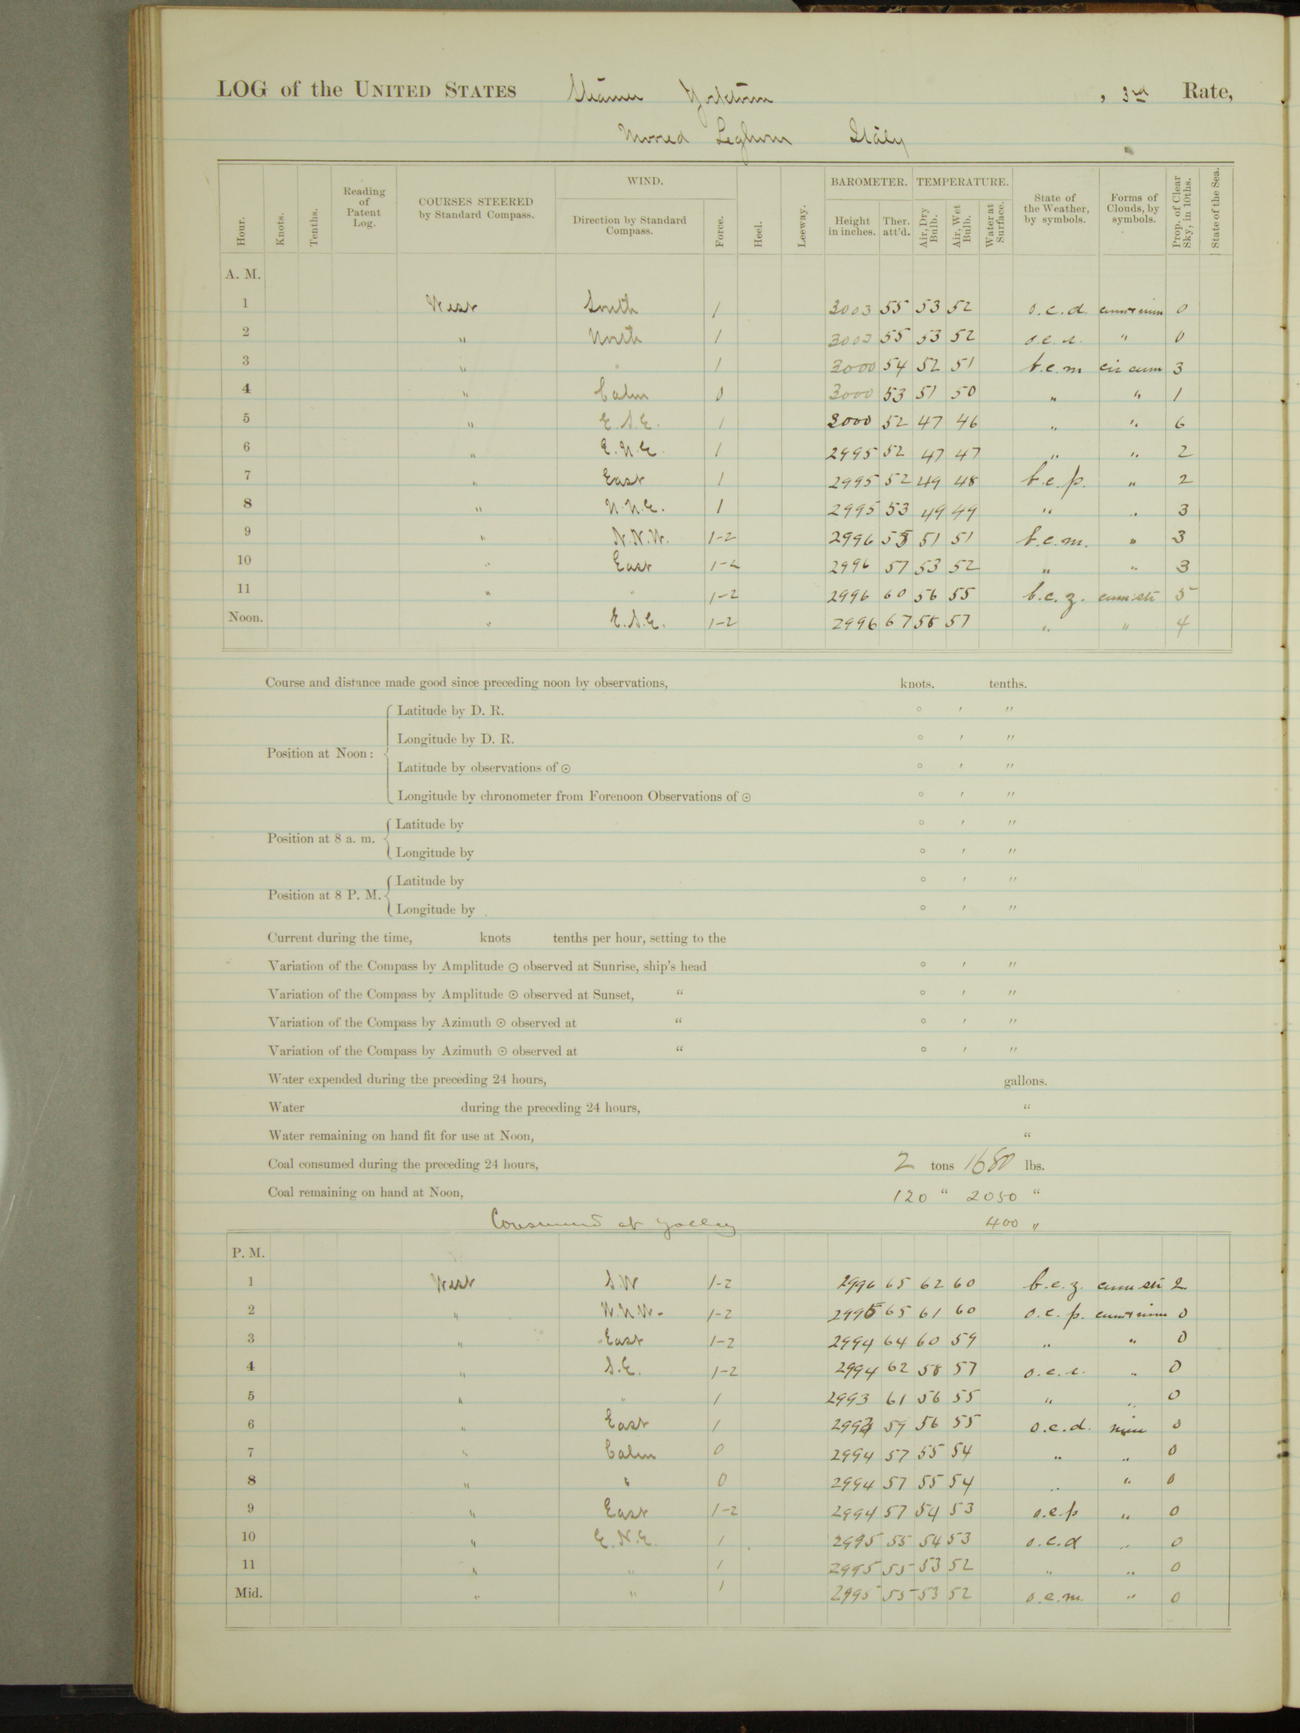 LOG of the UNITED STATES Steamer Yorktown , 3rd Rate,
Moored Leghorn Italy
Hour. Knots. Tenths. Reading of Patent Log. COURSES STEERED by Standard Compass. WIND. Direction by Standard Compass. Force. Heel. Leeway. BAROMETER. Height in inches. Ther. att'd. TEMPERATURE. Air, Dry Bulb. Air, Wet Bulb. Water at Surface. State of the Weather, by symbols. Forms of Clouds, by symbols. Prop. of Clear Sky, in 10ths. State of the Sea.
A. M.
1 West South 1 3003 55 53 52 o.c.d. cum+nim 0
2 " North 1 3003 55 53 52 o.c.r. " 0
3 " " 1 3000 54 52 51 b.c.m cir cum 3
4 " Calm 0 3000 53 51 50 " " 1
5 " E.S.E. 1 3000 52 47 46 " " 6
6 " E.N.E. 1 2995 52 47 47 " " 2
7 " East 1 2995 52 49 48 b.c.p. " 2
8 " N.N.E. 1 2995 53 49 49 " " 3
9 " N.N.W. 1-2 2996 55 51 51 b.c.m. " 3
10 " East 1-2 2996 57 53 52 " " 3
11 " " 1-2 2996 60 56 55 b.c.z. cum-str 5
Noon. " E.S.E. 1-2 2996 67 58 57 " " 4
Course and distance made good since preceding noon by observations, knots. tenths.
Position at Noon: Latitude by D. R. ° ′ ″
Longitude by D. R. ° ′ ″
Latitude by observations of ☉ ° ′ ″
Longitude by chronometer from Forenoon Observations of ☉ ° ′ ″
Position at 8 a. m. Latitude by ° ′ ″
Longitude by ° ′ ″
Position at 8 P. M. Latitude by ° ′ ″
Longitude by ° ′ ″
Current during the time, knots tenths per hour, setting to the
Variation of the Compass by Amplitude ☉ observed at Sunrise, ship's head ° ′ ″
Variation of the Compass by Amplitude ☉ observed at Sunset, " ° ′ ″
Variation of the Compass by Azimuth ☉ observed at " ° ′ ″
Variation of the Compass by Azimuth ☉ observed at " ° ′ ″
Water expended during the preceding 24 hours, gallons.
Water during the preceding 24 hours, "
Water remaining on hand fit for use at Noon, "
Coal consumed during the preceding 24 hours, 2 tons 1680 lbs.
Coal remaining on hand at Noon, 120 " 2050 "
Consumed at galley 400 "
P. M.
1 West S.W 1-2 2996 65 62 60 b.c.z. cum str 2
2 " W.N.W. 1-2 2995 65 61 60 o.c.p. cum+nim 0
3 " East 1-2 2994 64 60 59 " " 0
4 " S.E. 1-2 2994 62 58 57 o.c.r. " 0
5 " " 1 2993 61 56 55 " " 0
6 " East 1 299 59 56 55 o.c.d. nim 0
7 " Calm 0 2994 57 55 54 " " 0
8 " " 0 2994 57 55 54 " " 0
9 " East 1-2 2994 57 54 53 o.c.p " 0
10 " E.N.E. 1 2995 55 54 53 o.c.d " 0
11 " " 1 2995 55 53 52 " " 0
Mid. " " 1 2995 55 53 52 o.c.m. " 0